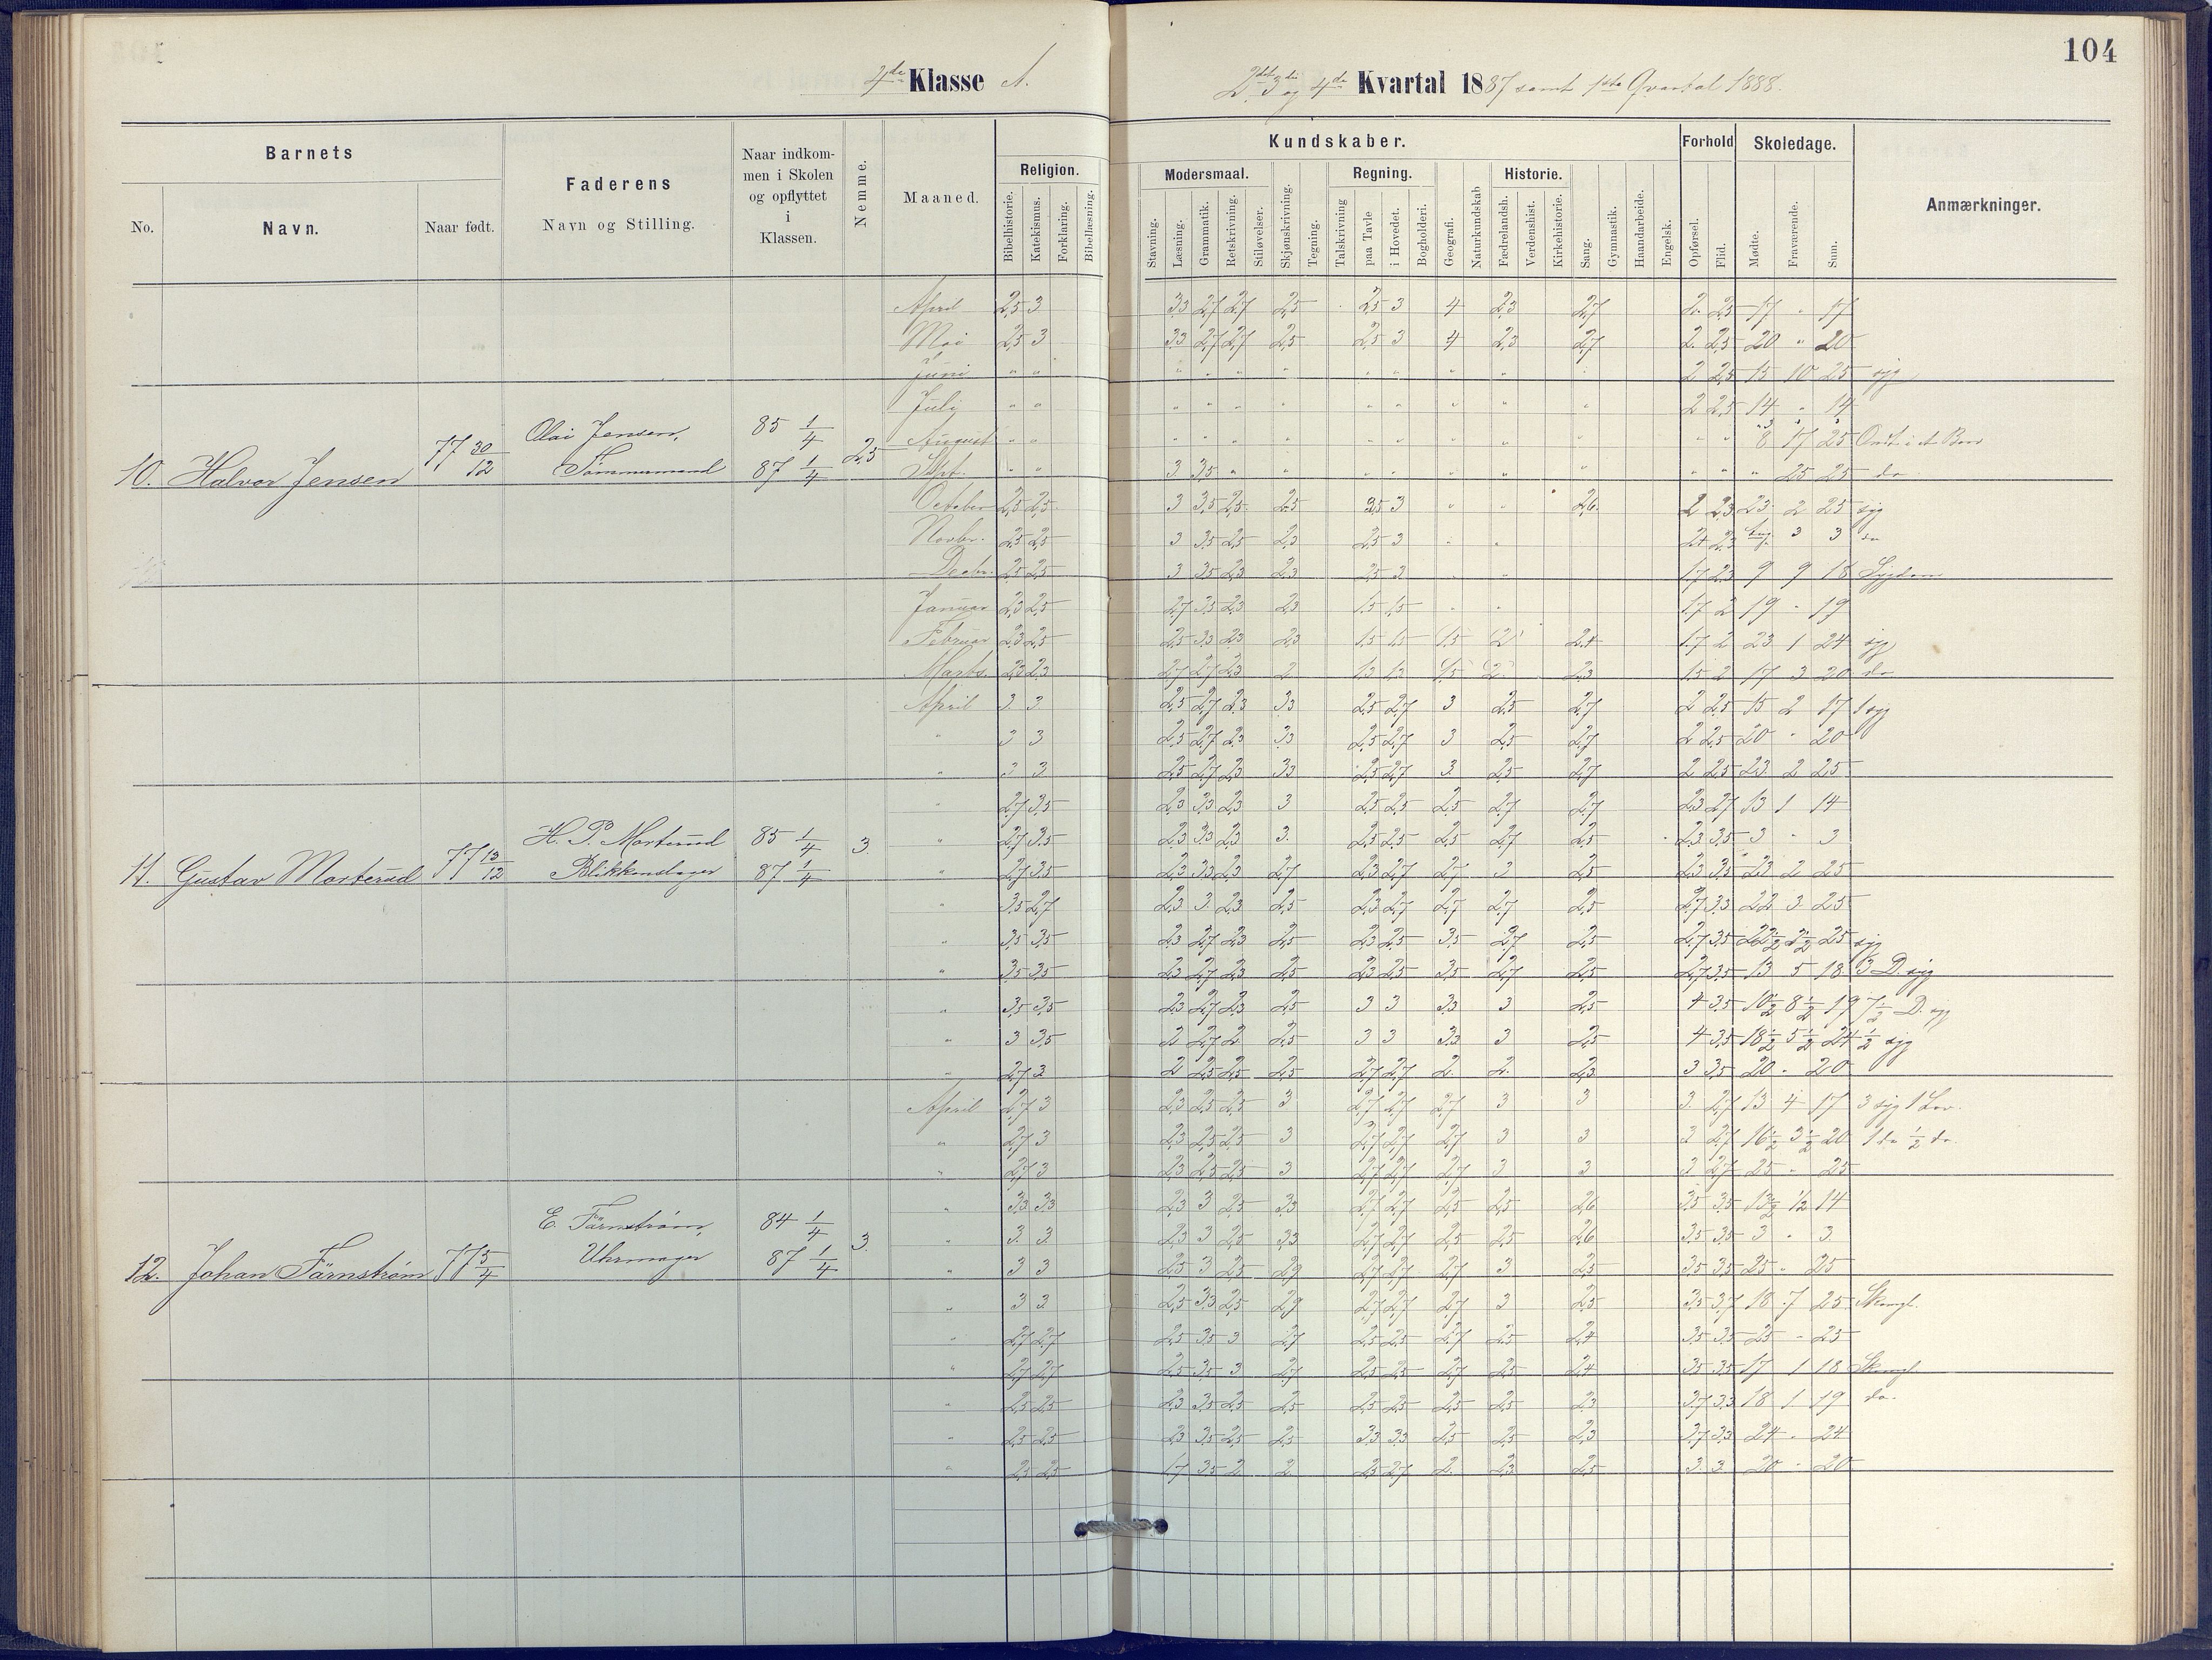 104
4de Klasse A.
2det 3die og 4de Kvartal 1887 samt 1ste Qvartal 1888.
Barnets
No.
Navn.
Naar født.
Faderens
Navn og Stilling.
Naar indkom-
men i Skolen
og opflyttet
i
Klassen.
Nemme.
Maaned.
Kundskaber.
Religion.
Bibelhistorie.
Katekismus.
Forklaring.
Bibellæsning.
Modersmaal.
Stavning.
Læsning.
Grammatik.
Retskrivning.
Stiløvelser.
Skjønskrivning.
Tegning.
Regning.
Talskrivning
paa Tavle
i Hovedet.
Bogholderi.
Geografi.
Naturkundskab
Historie.
Fædrelandsh.
Verdenshist.
Kirkehistorie.
Sang.
Gymnastik.
Haandarbeide.
Engelsk.
Forhold
Opførsel.
Flid.
Skoledage.
Mødte.
Fraværende.
Sum.
Anmærkninger.
April 2,5 3 3,3 2,7 2,7 2,5 2,5 3 4 2,3 2,7 2. 2,5 17 " 17
Mai 2,5 3 3,3 2,7 2,7 2,5 2,5 3 4 2,3 2,7 2. 2,5 20 " 20
Juni " " " " " " " " " " 2 2,5 15 10 25 syg
Juli " " " " " " " " " " " 2 2,5 14 " 14
August " " " " " " " " " " " " " 8 17 25
Sept. " " 3 3,5 " " " " " " " " " " 25 25 do
October 2,5 2,5 3 3,5 2,5 2,5 3,5 3 " " 2,6 2 2,3 23 2 25 syg
Novbr. 2,5 2,5 3 3,5 2,5 2,3 2,5 3 " " 2,4 2,3 3 3 do
Decbr. 2,5 2,5 3 3,5 2,3 2,3 2,5 3 " " 1,7 2,3 9 9 18 Sygdom
Januar 2,3 2,5 2,7 3,5 2,3 2,3 1,5 1,5 " " 1,7 2 19 - 19
Februar 2,3 2,5 2,5 3,3 2,3 2,3 1,5 1,5 1,5 2 2,4 1,7 2 23 1 24 syg
Marts. 2,3 2,3 2,7 2,7 2,3 2 1,3 1,3 1,5 2 2,3 1,5 2 17 3 20 do
10. Halvor Jensen 77 30/12
Olai Jensen,
Tømmermand
85 1/4
87 1/4
2,5
April 3. 3. 2,5 2,7 2,3 3,3 2,5 2,7 3 2,5 2,7 2 2,5 15 2 17 1 syg
" 3 3 2,5 2,7 2,3 3,3 2,5 2,7 3 2,5 2,7 2 2,5 20 " 20
" 3 3 2,5 2,7 2,3 3,3 2,5 2,7 3. 2,5 2,7 2 2,5 23 2 25
" 2,7 3,5 2,3 3,3 2,3 3 2,5 2,5 2,5 2,7 2,7 2,3 2,7 13 1 14
" 2,7 3,5 2,3 3,3 2,3 3. 2,5 2,5 2,5 2,7 2,5 2,3 3,5 3 " 3
" 2,7 3,5 2,3 3,3 2,3 2,7 2,3 2,7 2,7 3 2,5 2,3 3,5 23 2 25
" 3,5 2,7 2,3 3. 2,3 2,5 2,3 2,7 2,7 2,7 2,5 2,7 3,3 22 3 25
" 3,5 3,5 2,3 2,7 2,3 2,5 2,3 2,5 3,5 2,7 2,5 2,7 3,5 22 1/2 2 1/2 25 syg
" 3,5 3,5 2,3 2,7 2,3 2,5 2,3 2,5 3,5 2,7 2,5 2,7 3,5 13 5 18 3 D. syg
" 3,5 3,5 2,3 2,7 2,3 2,5 3 3 3,3 3 2,5 4 3,5 10 1/2 8 1/2 19 7 1/2 D. syg
" 3 3,5 2 2,7 2 2,5 3 3 3,3 3 2,5 4 3,5 18 1/2 5 1/2 24 1/2 syg
" 2,7 3 2 2,5 2,5 2,5 2,7 2,7 2. 2. 2,3 3 3,5 20 - 20
11. Gustav Morterud 77 13/12
H. P. Morterud
Blikkenslager
85 1/4
87 1/4
3
April 2,7 3 2,3 2,5 2,5 3 2,7 2,7 2,7 3 3 3. 2,7 13 4 17 3 syg 1 Lov.
" 2,7 3 2,3 2,5 2,5 3 2,7 2,7 2,7 3 3 3 2,7 16 1/2 3 1/2 20 1 do 1/2 do.
" 2,7 3 2,3 2,5 2,5 3 2,7 2,7 2,7 3 3 3 2,7 25 - 25
" 3,3 3,3 2,3 3 2,5 3,3 2,7 2,7 2,5 2,5 2,6 3,5 3,5 13 1/2 1/2 14
" 3 3 2,3 3 2,5 3,3 2,7 2,7 2,5 2,5 2,6 3,5 3,5 3 " 3
" 3 3 2,5 3 2,5 2,9 2,7 2,7 2,7 3 2,5 3,5 3,5 25 - 25
" 3 3 2,5 3,3 2,5 2,9 2,7 2,7 2,7 3 2,5 3,5 3,7 18 7 25
" 2,7 2,7 2,5 3,5 3 2,7 2,5 2,5 2,7 2,5 2,4 3,5 3,5 25 - 25
" 2,7 2,7 2,5 3,5 3 2,7 2,5 2,5 2,7 2,5 2,4 3,5 3,5 17 1 18
" 2,5 2,5 2,3 3,5 2,5 2,5 2,5 2,5 2,5 2,5 2,3 3,7 3,3 18 1 19 do.
" 2,5 2,5 2,3 3,5 2,5 2,5 3,3 3,3 2,5 2,5 2,3 3,7 3,3 24 - 24
" 2,5 2,5 1,7 3,5 2 2 2,5 2,7 2. 2,3 2,5 3 3 20 - 20
12. Johan Färnstrøm 77 5/4
E. Färnstrøm,
Uhrmager
84 1/4
87 1/4
3